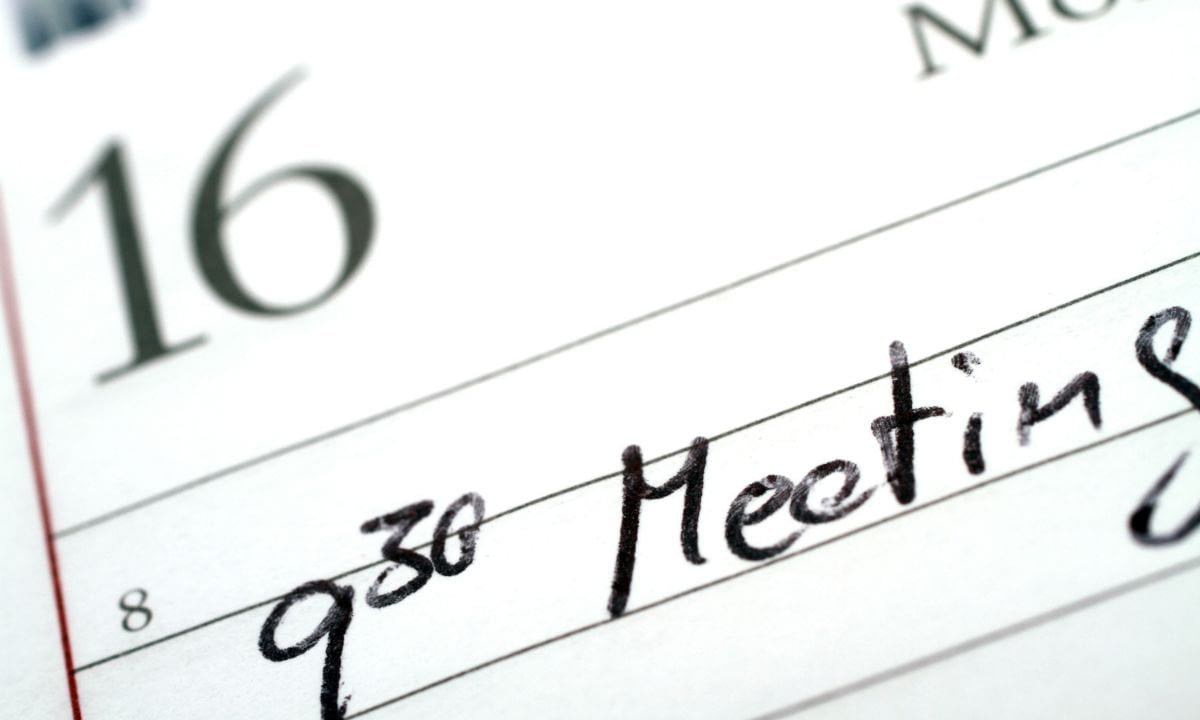 16
Mo
8
9 30 Meeting